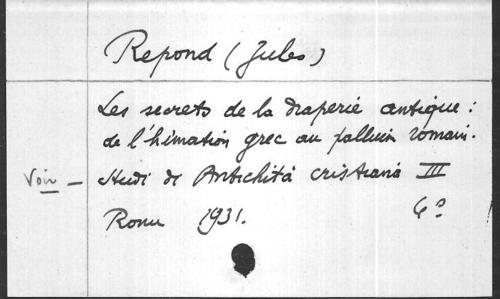 Repond (Jules)
Les secrets de la draperie antique :
de l'himation grec au pallium romain.
Voir – Studi di Antichità cristiana III
Rome 1931. 4°